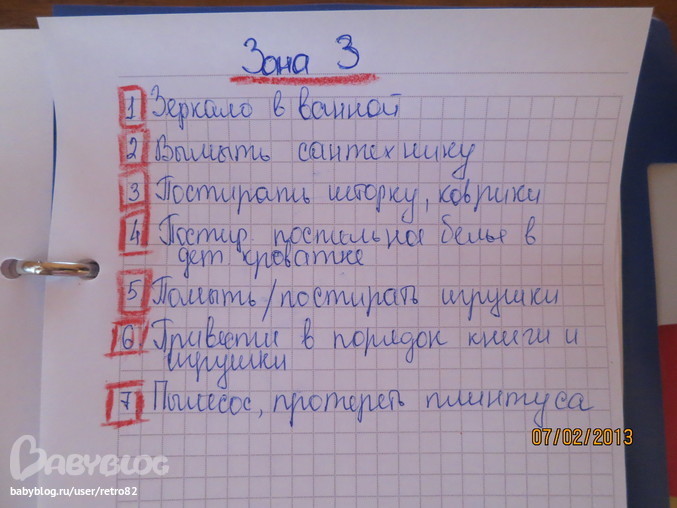 Зона 3
1 Зеркало в ванной
2 Вымыть сантехнику
3 Постирать шторку, коврики
4 Постир. постельное белье в
дет кроватке
5 Помыть/постирать игрушки
6 Привести в порядок книги и
игрушки
7 Пылесос, протереть плинтуса
07/02/2013
BABYBLOG
babyblog.ru/user/retro82